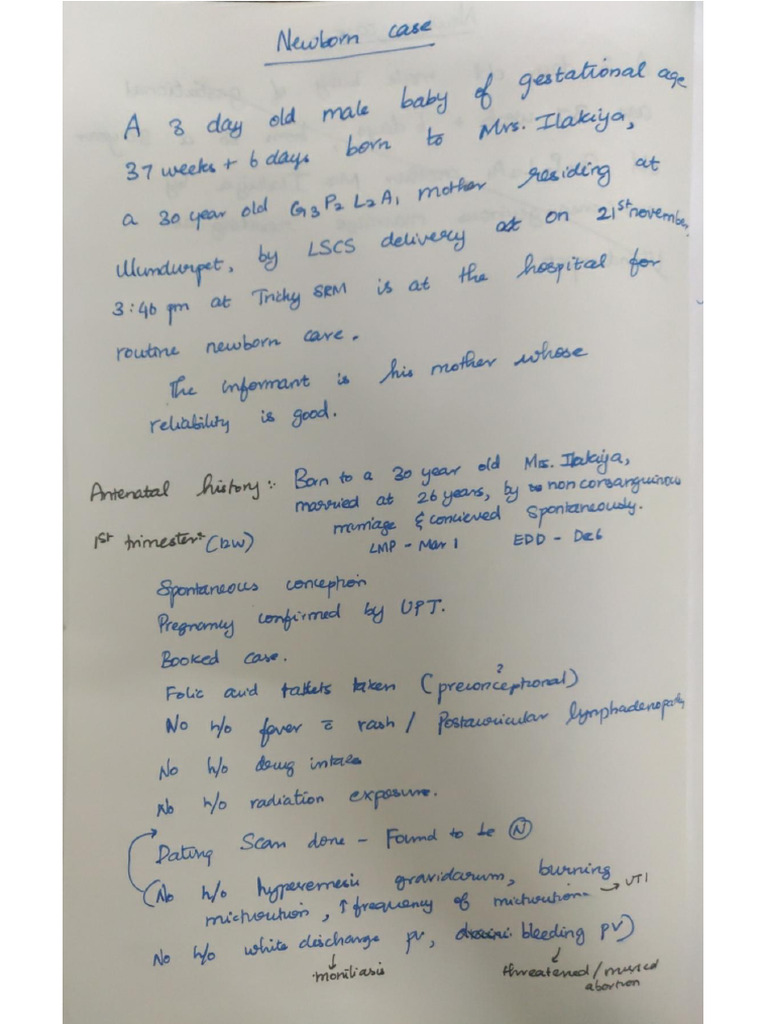 Newborn case
A 3 day old male baby of gestational age
37 weeks + 6 days born to Mrs. Ilakiya,
a 30 year old G3P2L2A1 mother residing at
Ulundurpet, by LSCS delivery at on 21st november
3:46 pm at Trichy SRM is at the hospital for
routine newborn care.
The informant is his mother whose
reliability is good.
Antenatal history:- Born to a 30 year old Mrs. Ilakiya,
married at 26 years, by non consanguinous
marriage & concieved spontaneously.
1st trimester:- (12W) LMP - Mar 1 EDD - Dec 6
Spontaneous conception
Pregnancy confirmed by UPT.
Booked case.
Folic acid tablets taken (preconceptional)?
No h/o fever c̄ rash / Postauricular lymphadenopathy
No h/o drug intake
No h/o radiation exposure.
Dating Scan done - Found to be Ⓝ
(No h/o hyperemesis gravidarum, burning
micturition, ↑ frequency of micturition → UTI
No h/o white discharge pv, bleeding pv)
↓ moniliasis ↓ threatened / missed
abortion